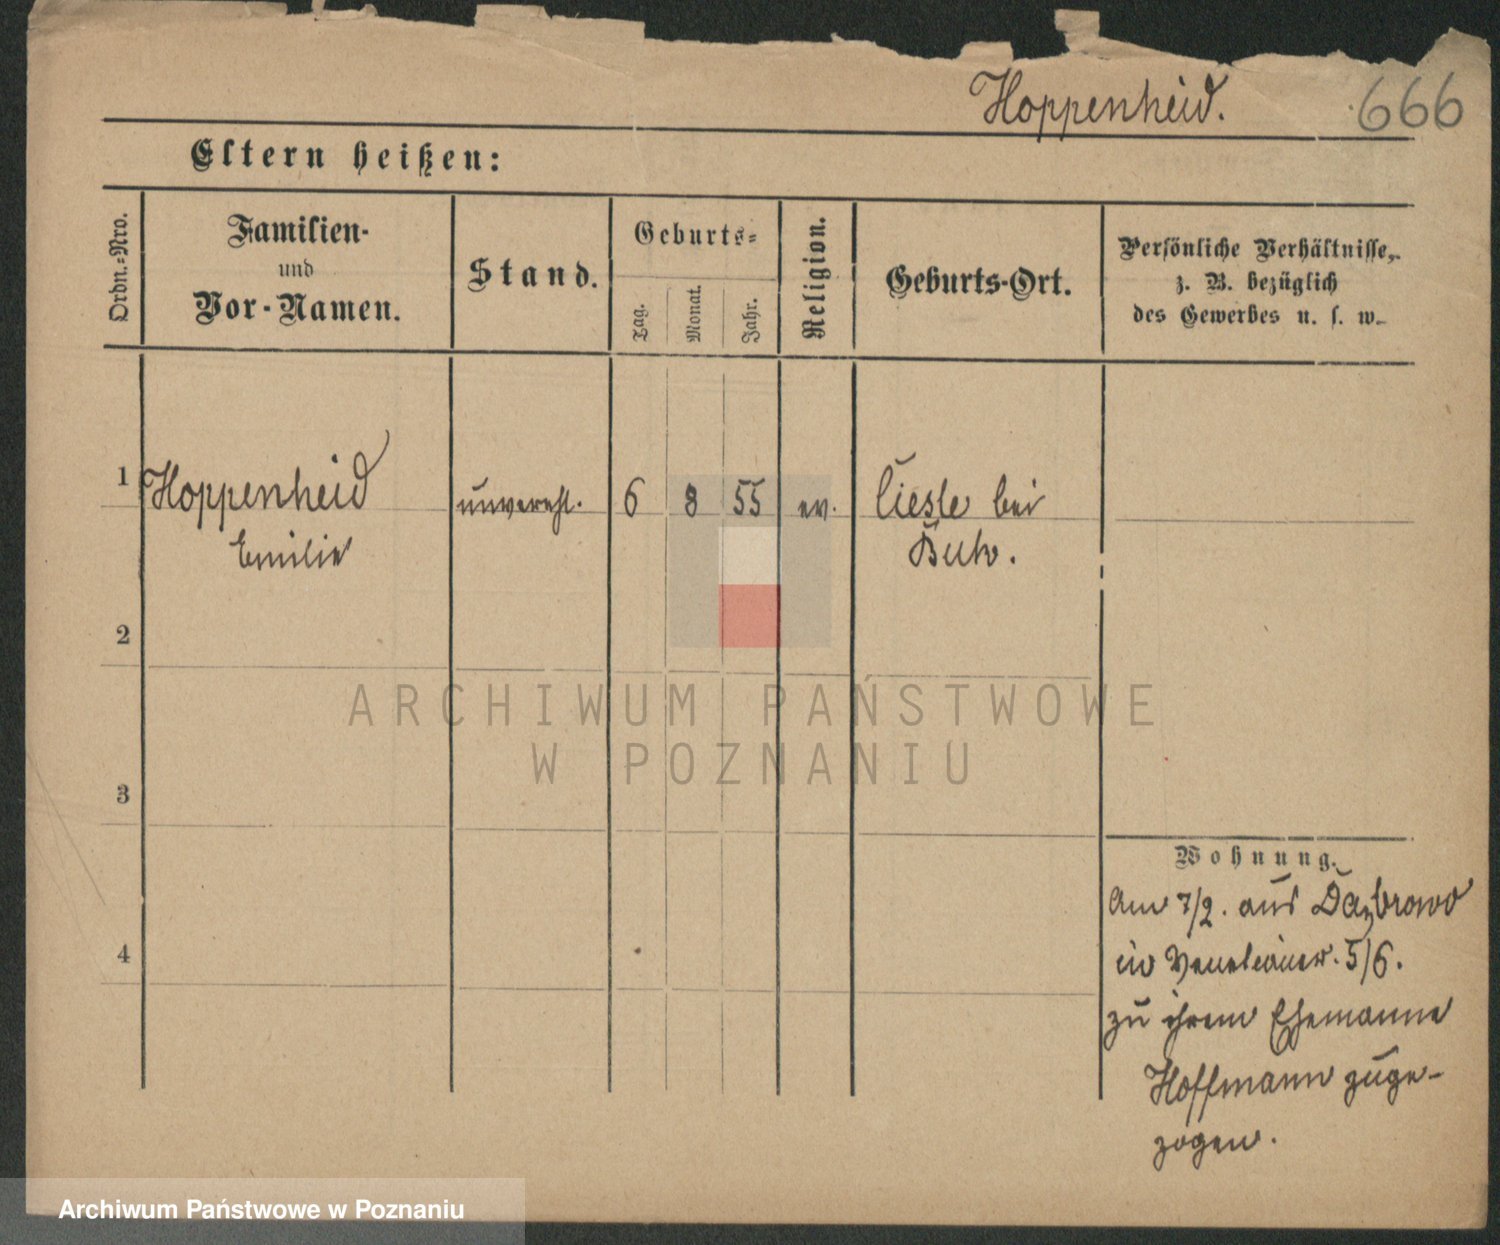 Hoppenheid. 666
Eltern heißen:
Ordn.-Nro.
Familien-
und
Vor-Namen.
Stand.
Geburts-
Tag.
Monat.
Jahr.
Religion.
Geburts-Ort.
Persönliche Verhältnisse,
z. B. bezüglich
des Gewerbes u. s. w.
1 Hoppenheid unverehl. 6 8 55 ev. Ciesle bei
Emilie Buk.
2
3
4
ARCHIWUM PAŃSTWOWE
W POZNANIU
Wohnung.
Am 7/2. aus Dąbrowo
in 5/6.
zu ihrem Ehemanne
Hoffmann zuge-
zogen.
Archiwum Państwowe w Poznaniu